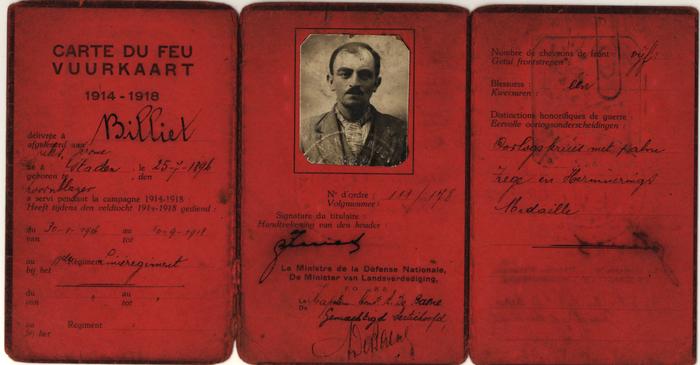 CARTE DU FEU
VUURKAART
1914-1918
délivrée à
afgeleverd aan
Billiet
né à Staden le 25-7-1896
geboren te den
hoornblazer
a servi pendant la campagne 1914-1918
Heeft tijdens den veldtocht 1914-1918 gediend :
du au
van tot
au Regiment Linieregiment
bij het
du au
van tot
au Regiment
bij het
N° d'ordre :
Volgnummer :
Signature du titulaire :
Handteekening van den houder :
Le Ministre de la Défense Nationale,
De Minister van Landsverdediging,
Le
De
Gemachtigd
Nombre de chevrons de front : vijf
Getal frontstrepen :
Blessures : één
Kwetsuren :
Distinctions honorifiques de guerre :
Eervolle oorlogsonderscheidingen :
Oorlogskruis met palm
Zege en Herinnerings
Medaille